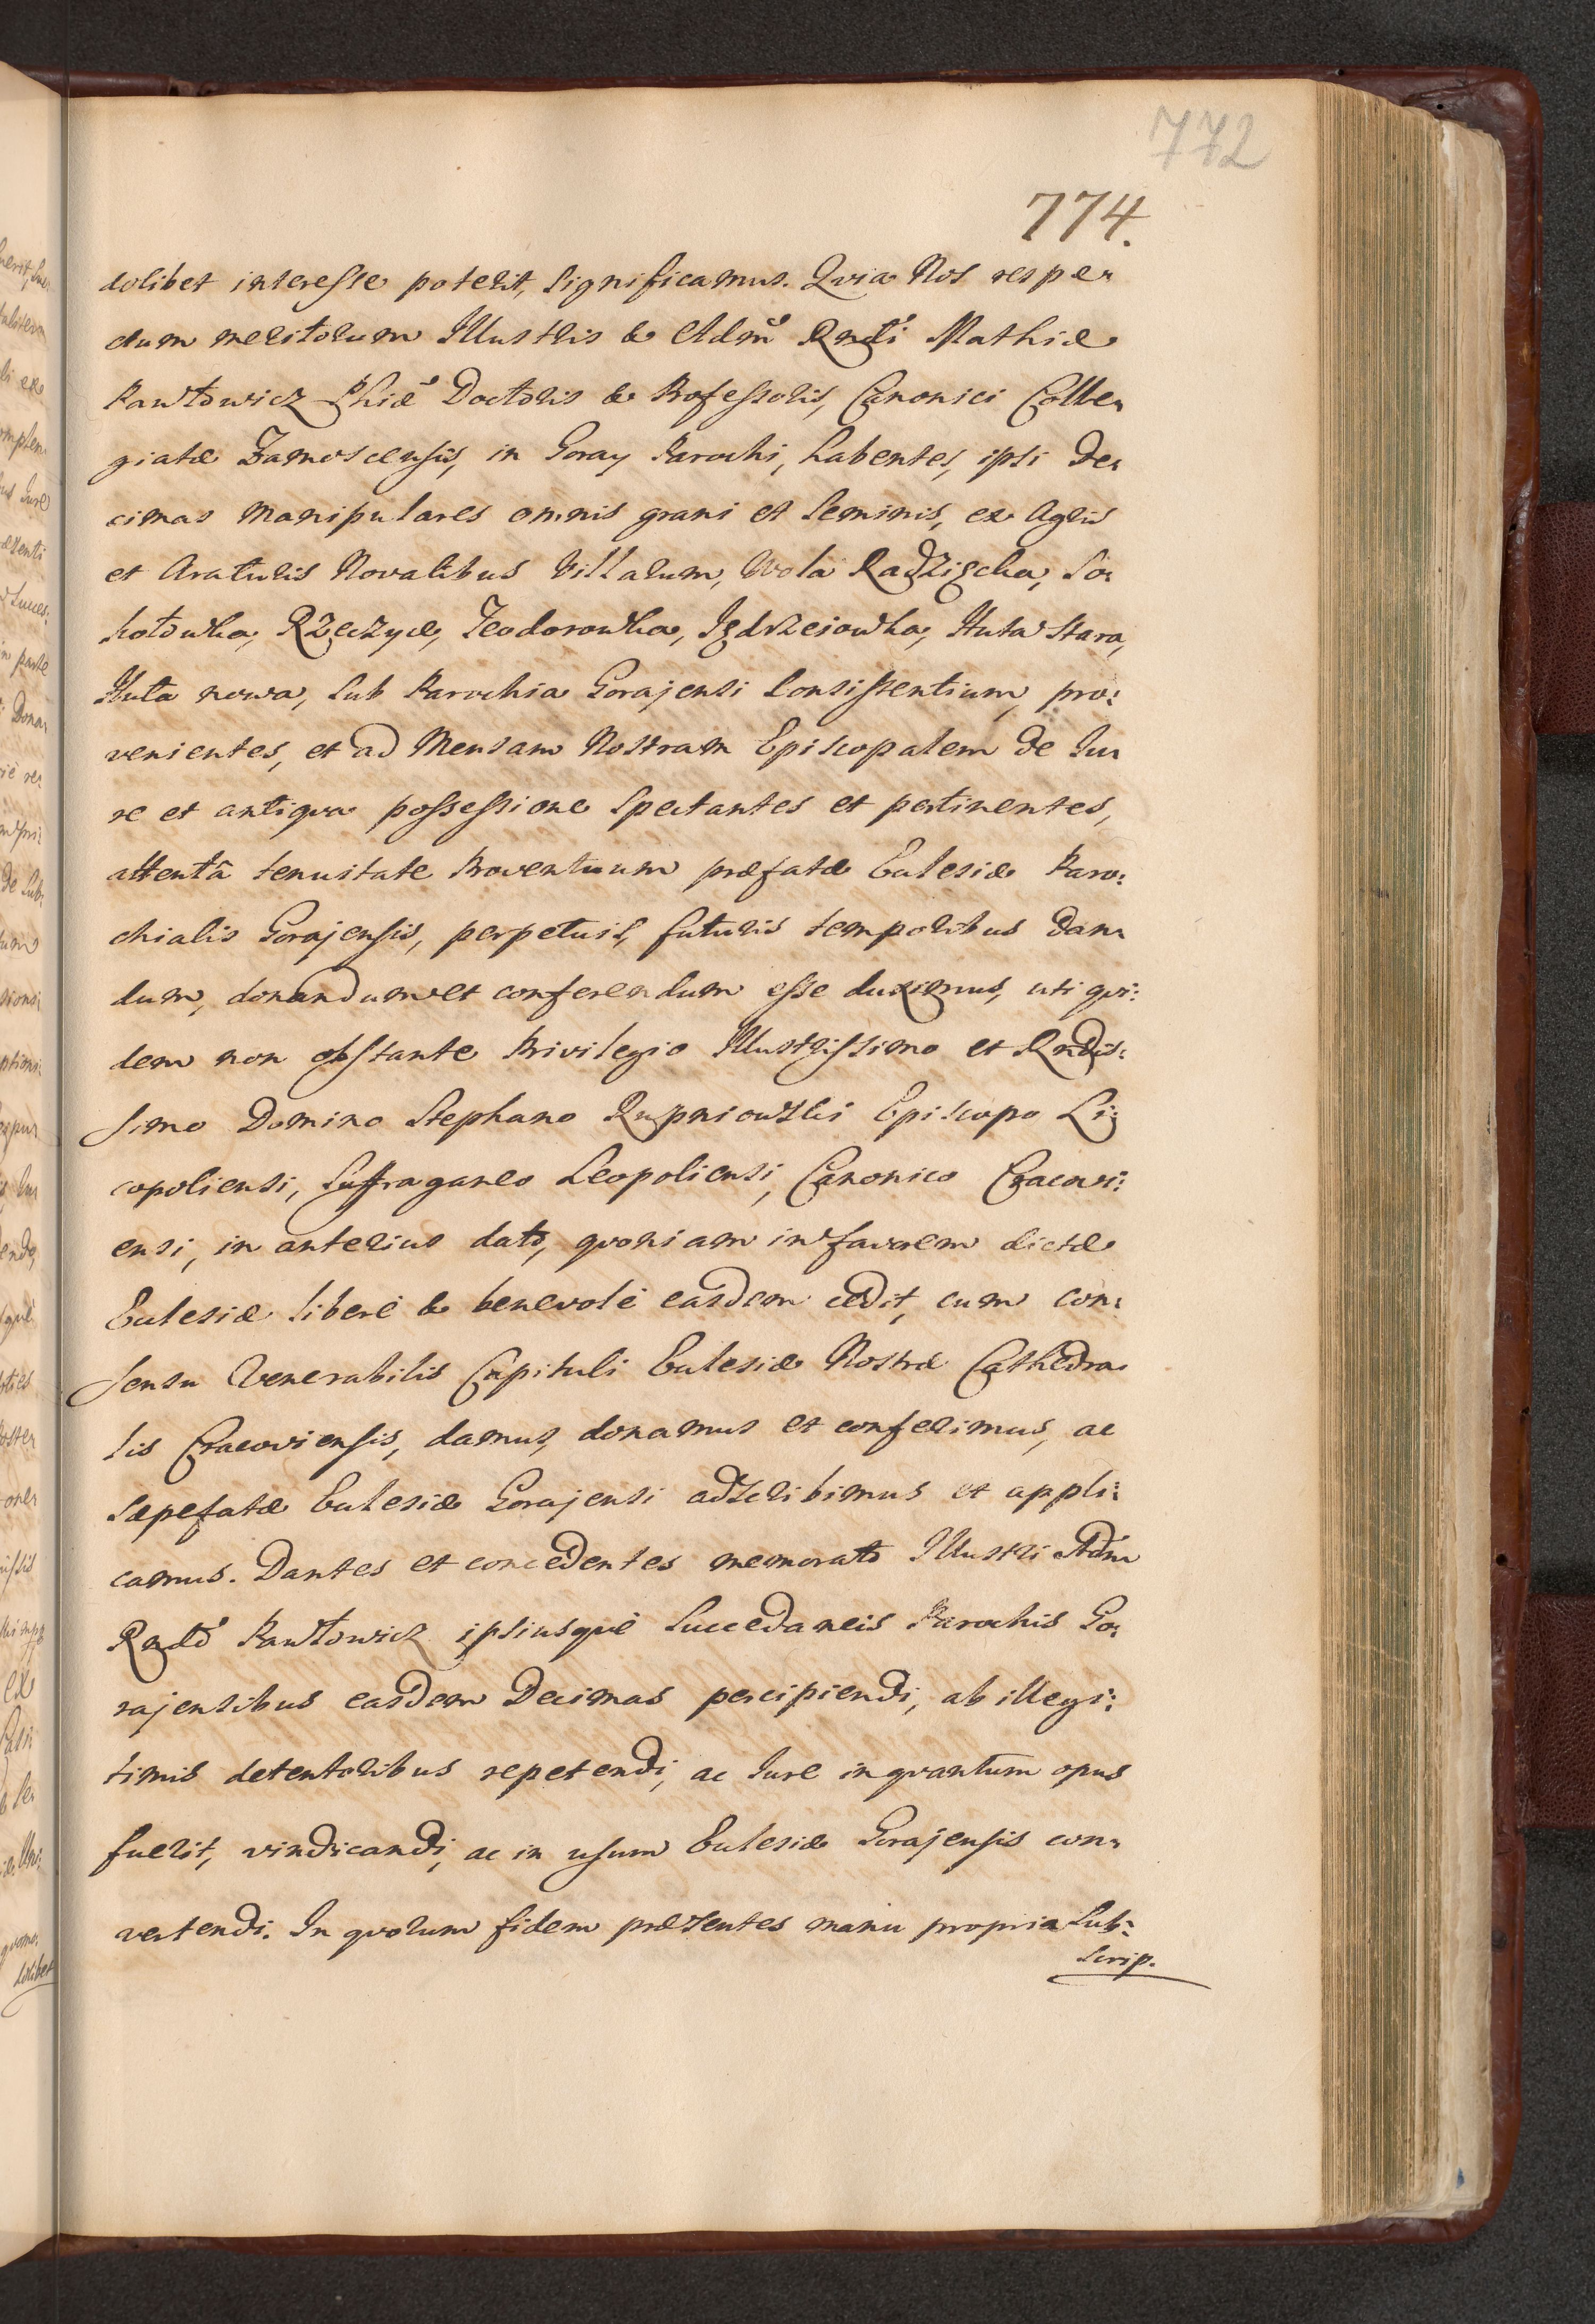 772
774.
dolibet interesse poterit, significamus. Qvia Nos respe-
ctum meritorum Illustris & Admº Rndi Mathiæ
Pawłowicz Phiæ Doctoris & Professoris, Canonici Colle-
giatæ Zamoscensis, in Goray Parochi, habentes, ipsi De-
cimas Manipulares omnis grani et seminis, ex Agris
et Araturis Novalibus Villarum, Wola Radzięcka, So-
kołowka, Rzeczyce, Teodorowka, Jędrzeiowka, Huta Stara,
Huta nowa, sub Parochia Gorajensi consistentium, pro:
venientes, et ad Mensam Nostram Episcopalem de Iu-
re et antiqva possessione spectantes et pertinentes,
attentâ tenuitate Proventuum præfatæ Ecclesiæ Paro:
chialis Gorajensis, perpetuis, futuris temporibus dan-
dum, donandum et conferendum esse duximus, uti qvi:
dem non obstante Privilegio Illustrissimo et Rndis:
simo Domino Stephano Rupniowski Episcopo Li:
copoliensi, Suffraganeo Leopoliensi, Canonico Cracovi:
ensi, in anterius dato, qvoniam in favorem dictæ
Ecclesiæ liberè & benevolè easdem cedit, cum con:
sensu Venerabilis Capituli Ecclesiæ Nostræ Cathedra-
lis Cracoviensis, damus, donamus et conferimus, ac
sæpefatæ Ecclesiæ Gorajensi adscribimus et appli:
camus. Dantes et concedentes memorato Illustri Adm
Rndo Pawłowicz ipsiusqvè Succedaneis Parochis Go-
rajensibus easdem Decimas percipiendi, ab illegi:
timis detentoribus repetendi, ac Iure inqvantum opus
fuerit, vindicandi, ac in usum Ecclesiæ Gorajensis con-
vertendi. In qvorum fidem præsentes manu propria sub:
scrip.